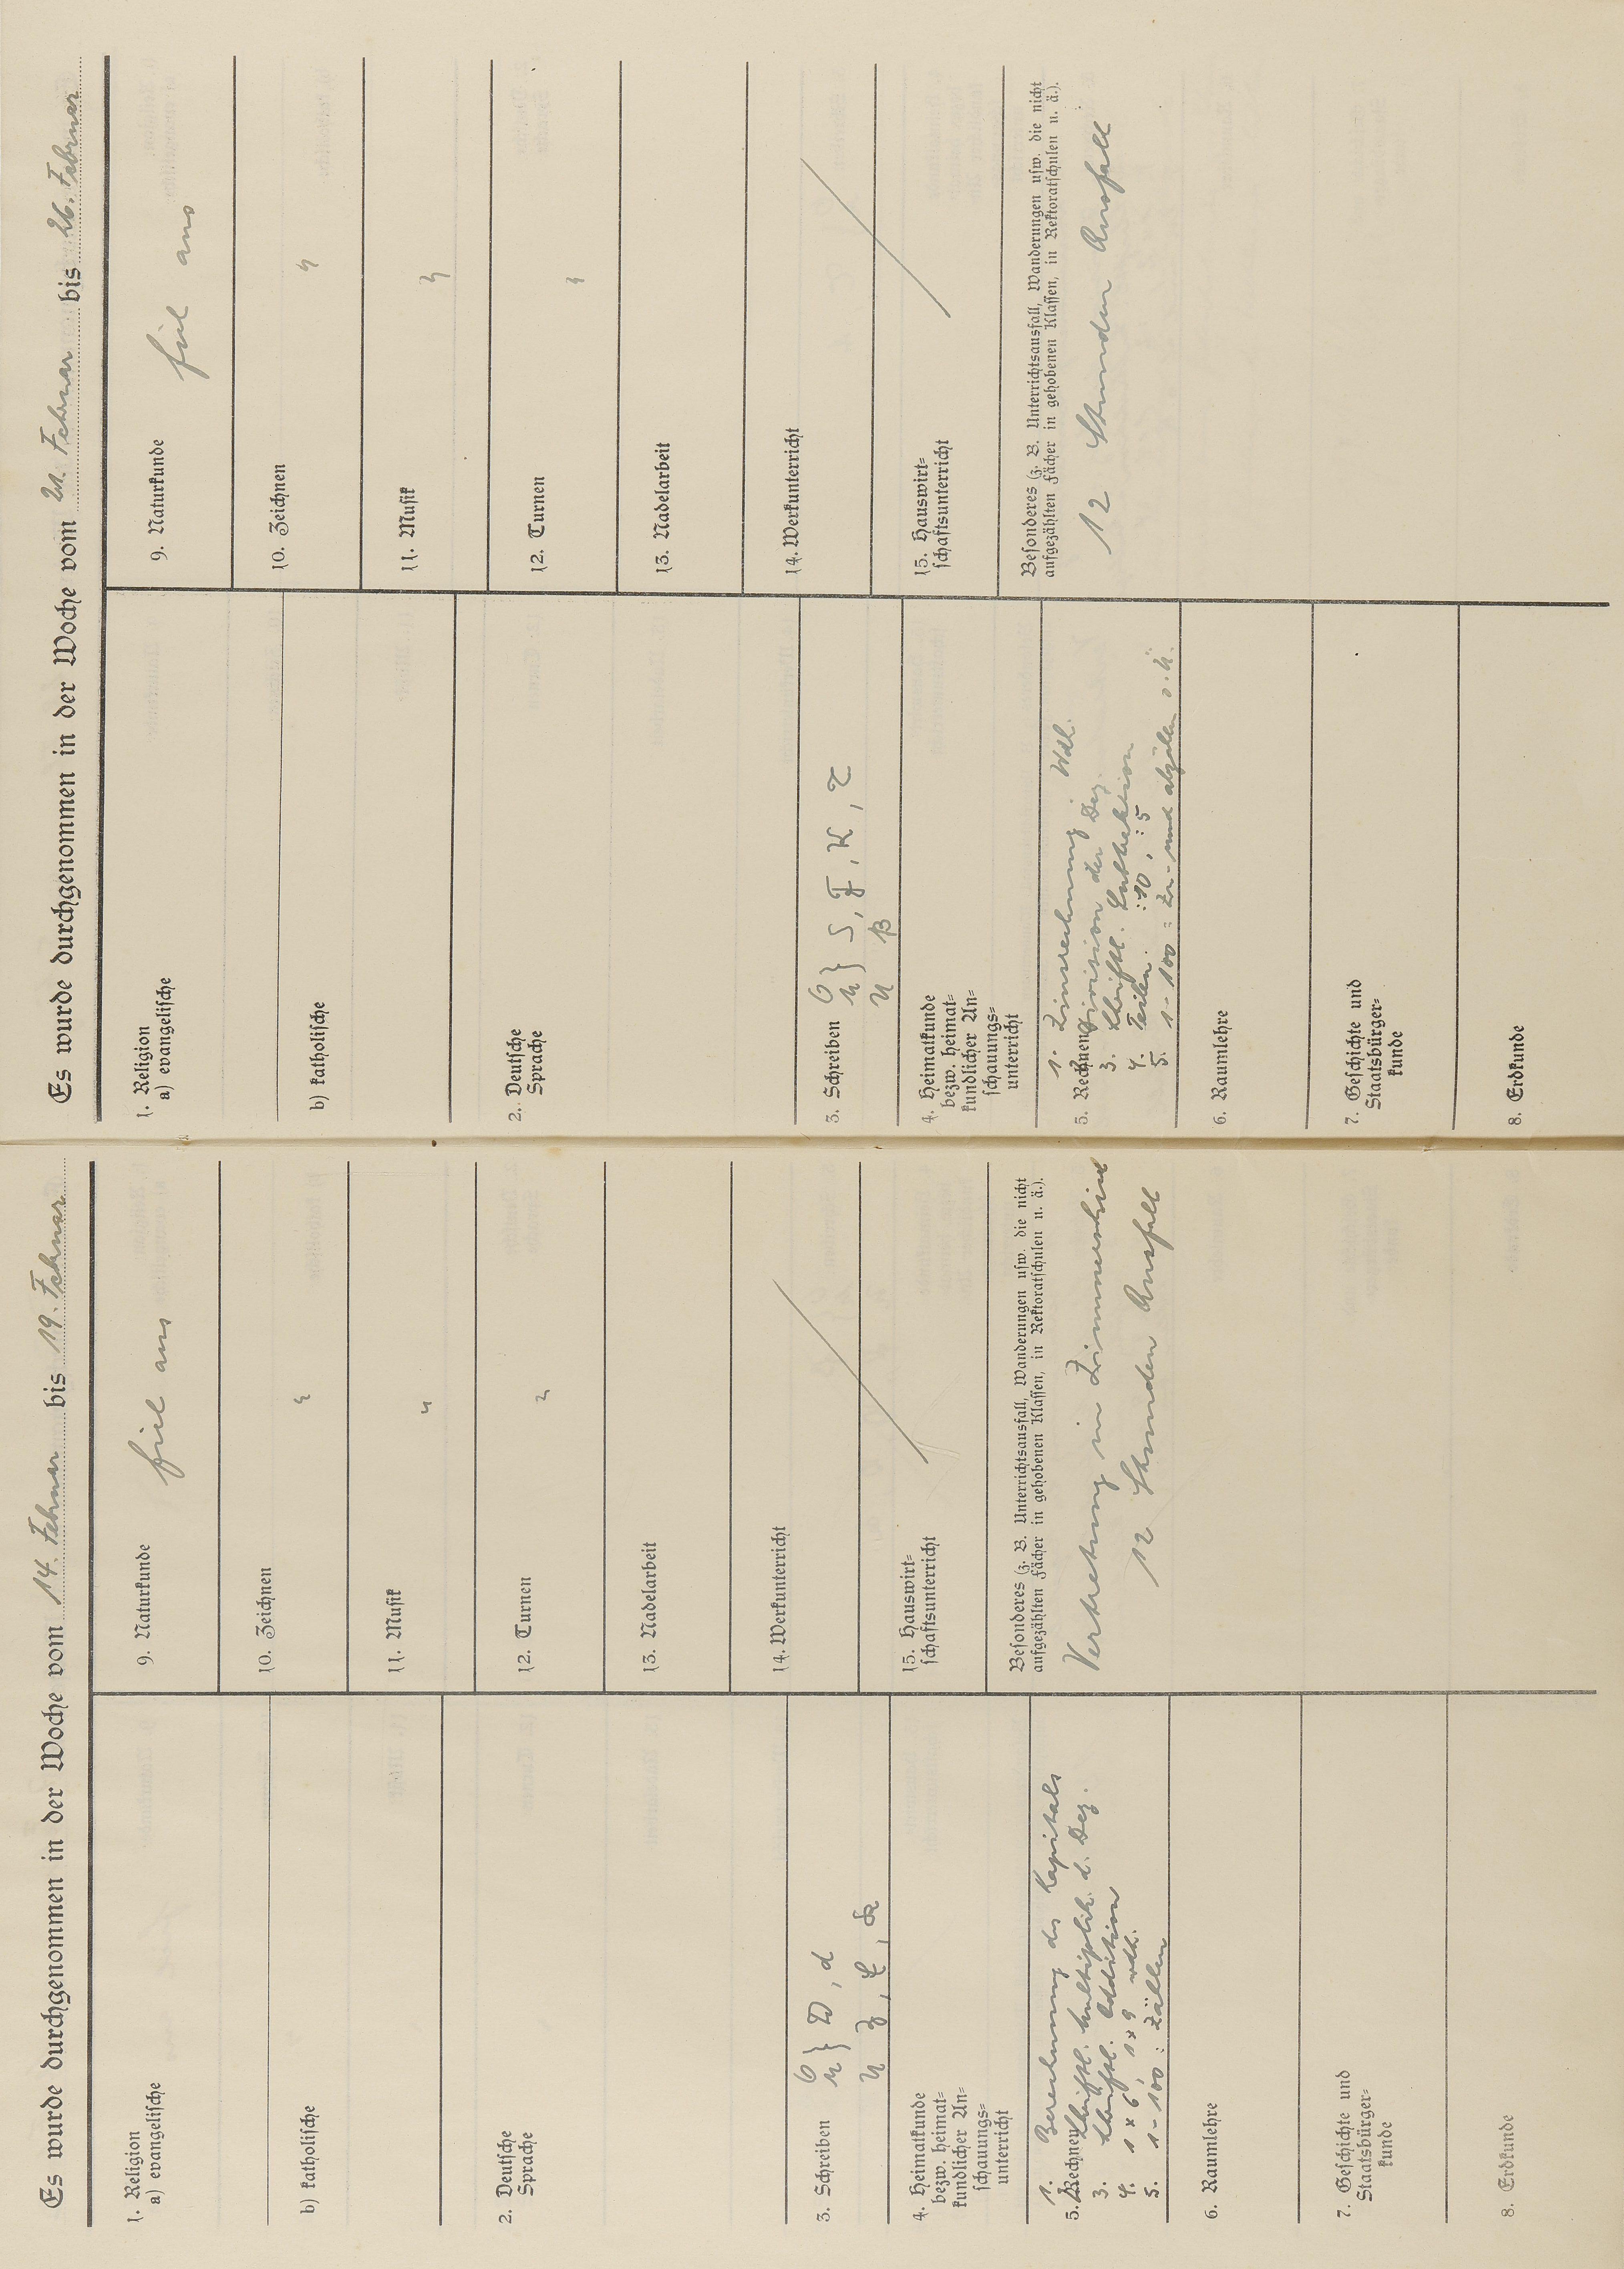 Es wurde durchgenommen in der Woche vom 14. Februar bis 19. Februar
1. Religion
a) evangelische
b) katholische
2. Deutsche
Sprache
3. Schreiben
O
M } D, d
U
4. Heimatkunde
bezw. heimat=
kundlicher An=
schauungs=
unterricht
5. Rechnen
1. Berechnung des Kapitals
2. schriftl. Multiplik. d. Dez.
3. schriftl. Addition
4. 1 x 6, 1 x 9 wdh.
5. 1 - 100 : Zählen
6. Raumlehre
7. Geschichte und
Staatsbürger=
kunde
8. Erdkunde
9. Naturkunde
fiel aus
10. Zeichnen
"
11. Musik
"
12. Turnen
"
13. Nadelarbeit
14. Werkunterricht
15. Hauswirt=
schaftsunterricht
Besonderes (z. B. Unterrichtsausfall, Wanderungen usw. die nicht
aufgezählten Fächer in gehobenen Klassen, in Rektoratschulen u. ä.).
Vertretung in
12 Stunden Ausfall
Es wurde durchgenommen in der Woche vom 21. Februar bis 26. Februar
1. Religion
a) evangelische
b) katholische
2. Deutsche
Sprache
3. Schreiben
O
M } S, F, K, T
U B
4. Heimatkunde
bezw. heimat=
kundlicher An=
schauungs=
unterricht
5. Rechnen
1. Zinsrechnung. Wdl.
2. Division der Dez.
3. schriftl. Subtraktion
4. Teilen. :10, :5
5. 1 - 100 : Zu- und abzälen s. ü.
6. Raumlehre
7. Geschichte und
Staatsbürger=
kunde
8. Erdkunde
9. Naturkunde
fiel aus
10. Zeichnen
"
11. Musik
"
12. Turnen
"
13. Nadelarbeit
14. Werkunterricht
15. Hauswirt=
schaftsunterricht
Besonderes (z. B. Unterrichtsausfall, Wanderungen usw. die nicht
aufgezählten Fächer in gehobenen Klassen, in Rektoratschulen u. ä.).
12 Stunden Ausfall